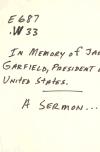 E687
.W33
In Memory of Ja
Garfield, President
United States.
A Sermon...